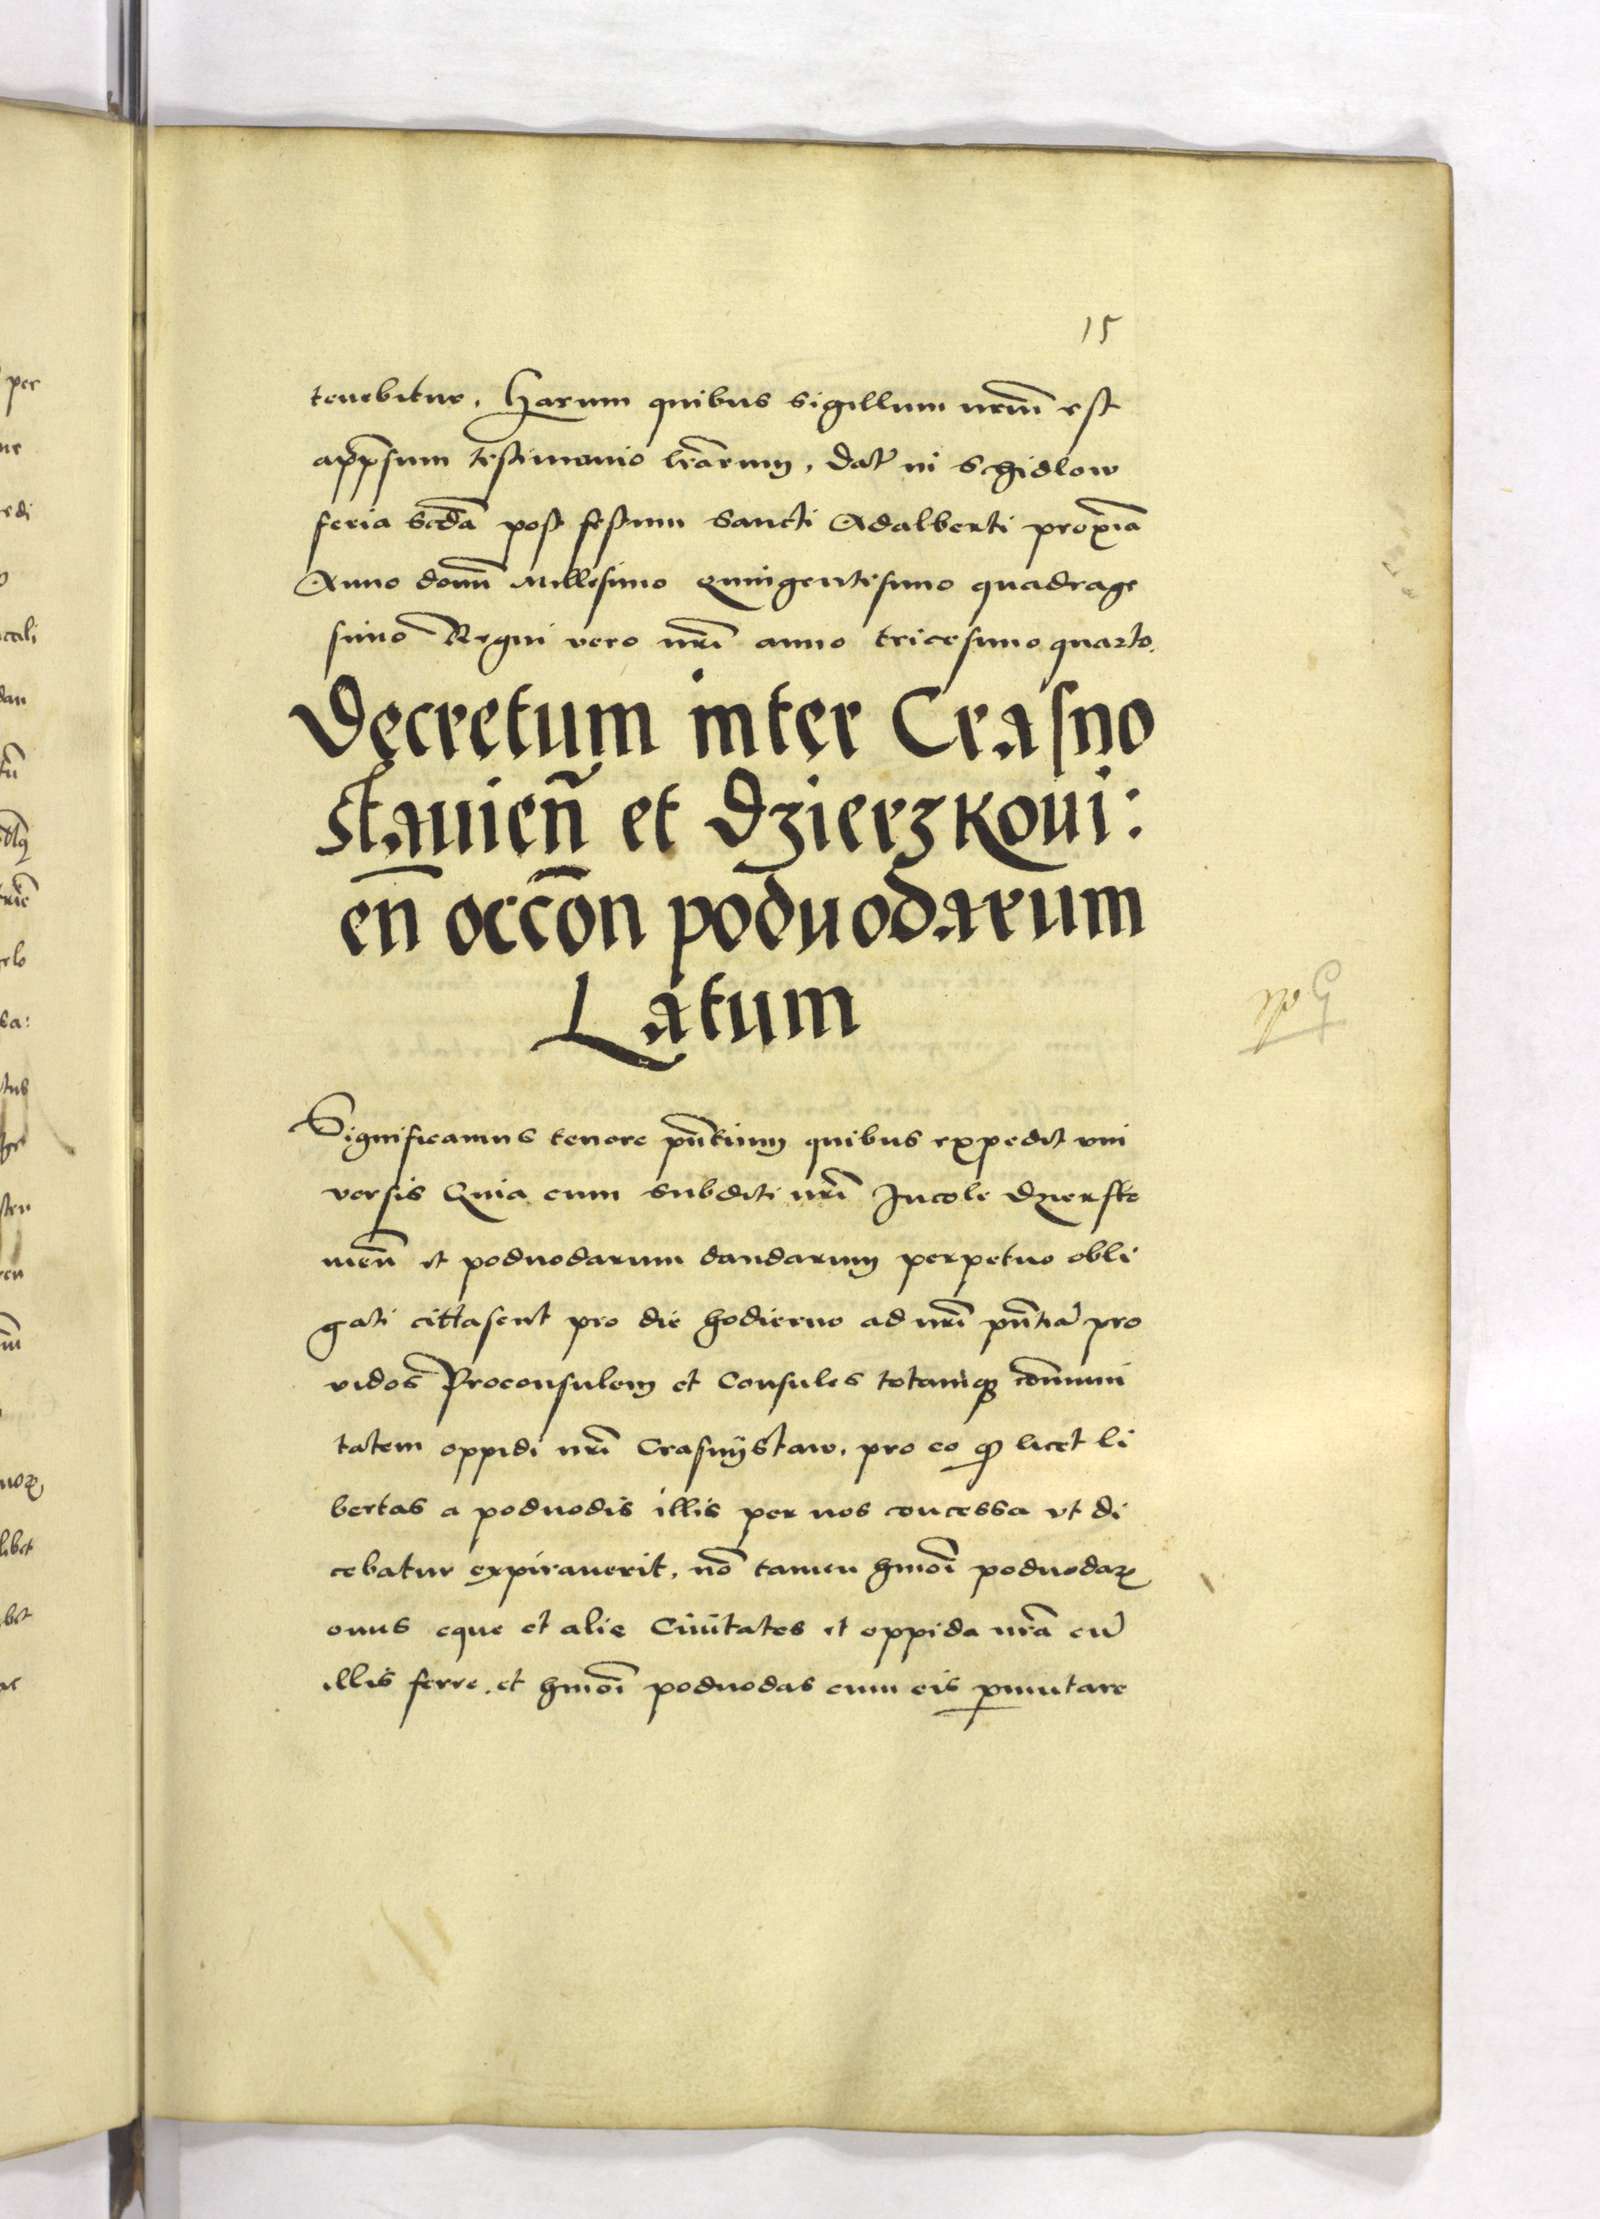 15
tenebitur. Harum quibus sigillum nrm̃ est
app̃sum testimonio lr̃arum, dat̃ in Schidlow
feria scd̃a post festum sancti Adalberti proxĩa
Anno domĩ Millesimo Quingentesimo quadrage
simo Regni vero nrĩ anno tricesimo quarto.
Decretum inter Crasno
stauien̄ et Dzierzkoui:
en̄ occōn poduodarum
Latum
Significamus tenore pñtium quibus expedit vni
versis Quia cum subditi nrĩ Incole
et poduodarum dandarum perpetuo obli
gati cittasent pro die hodierno ad nrĩ pñtiã pro
vidos Proconsulem et Consules totamq̃ cõmuni
tatem oppidi nrĩ Crasnystaw, pro eo q̃ licet li
bertas a poduodis illis per nos concessa vt di
cebatur expirauerit, nõ tamen hmõi poduodaꝝ
onus eque et alie Ciuitates et oppida nrã cũ
illis ferre, et hmõi poduodas cum eis ꝑmutare